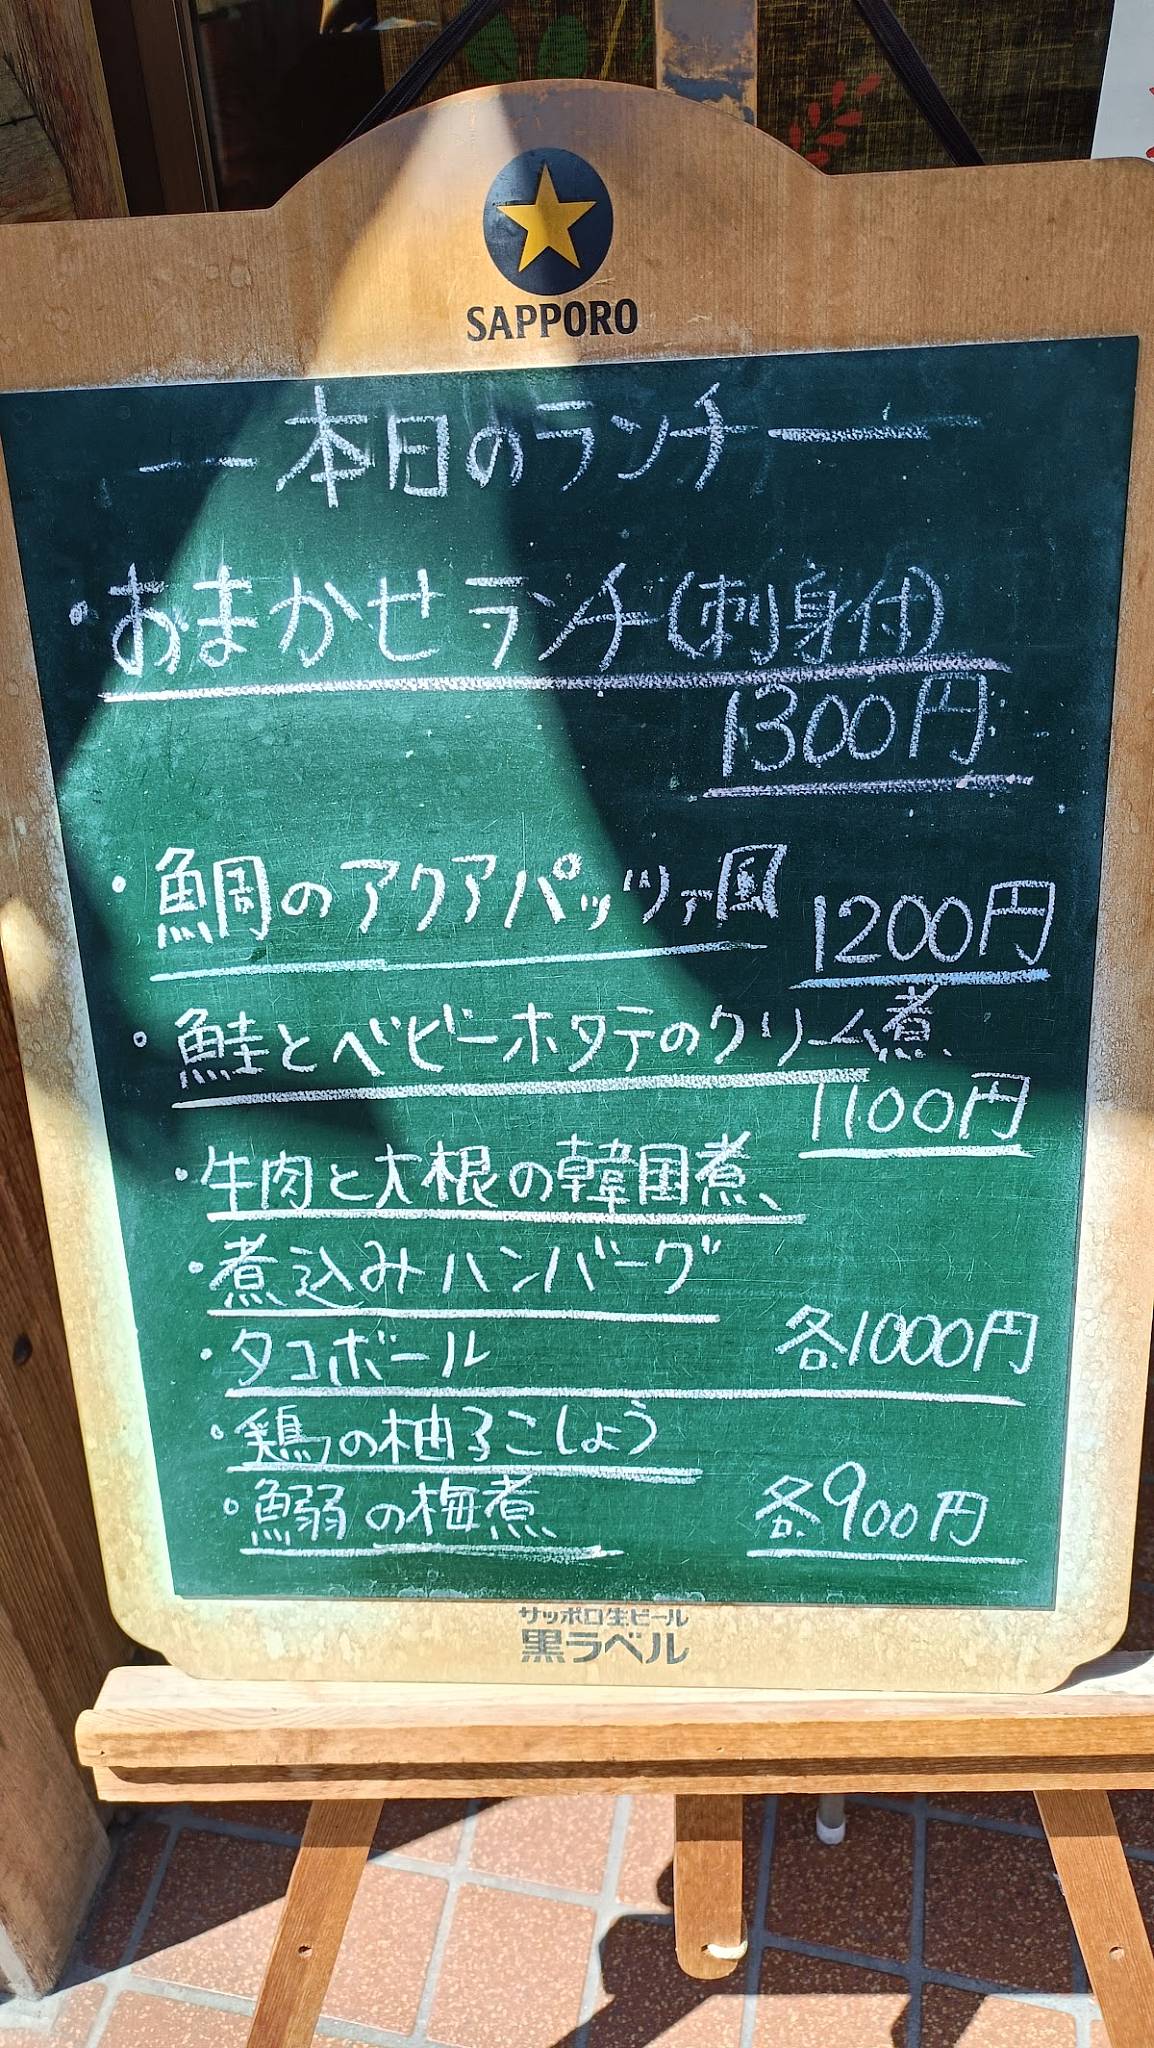 SAPPORO
本日のランチ
・おまかせランチ(刺身付)
1300円
・鯛のアクアパッツァ風 1200円
・鮭とベビーホタテのクリーム煮
1100円
・牛肉と大根の韓国煮
・煮込みハンバーグ
・タコボール 各1000円
・鶏の柚子こしょう
・鰯の梅煮 各900円
サッポロ生ビール
黒ラベル